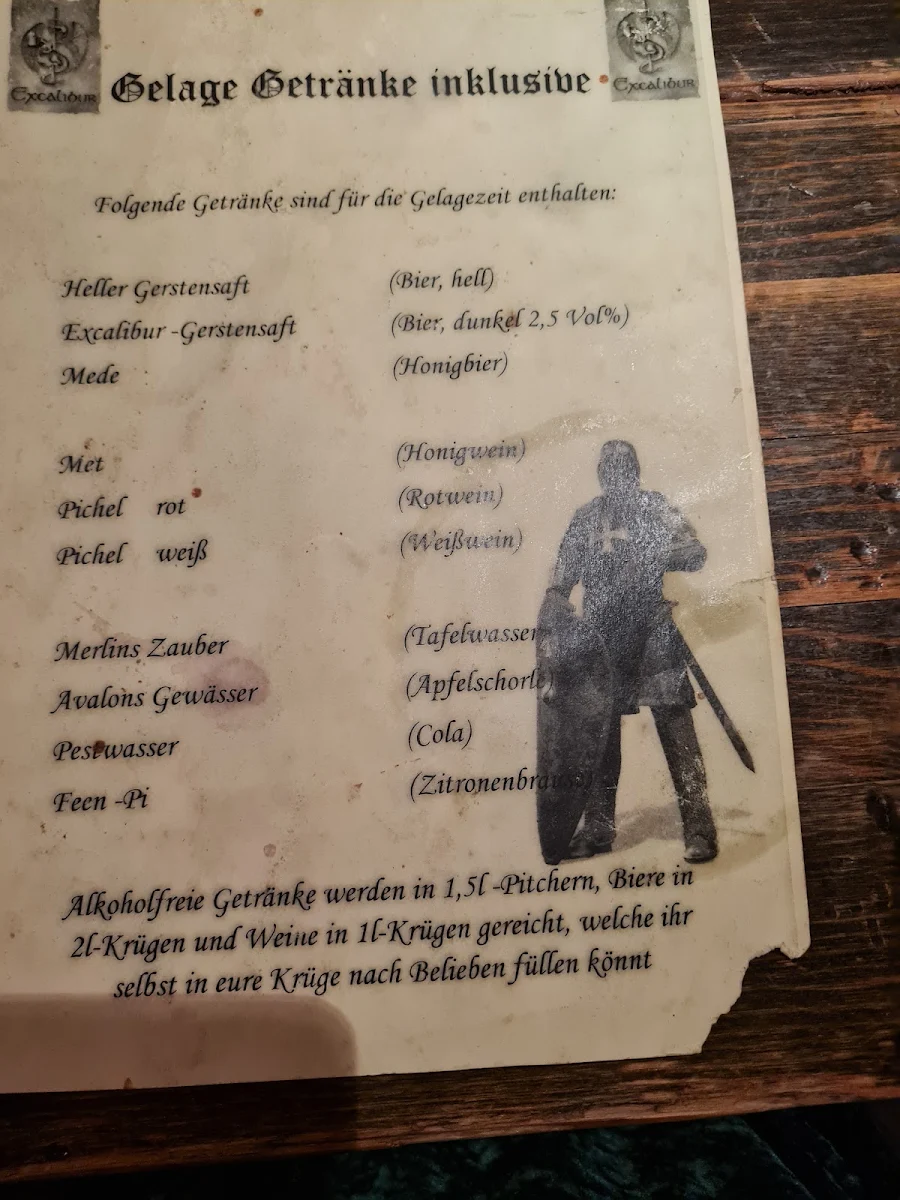 Excalibur
Gelage Getränke inklusive
Excalibur
Folgende Getränke sind für die Gelagezeit enthalten:
Heller Gerstensaft (Bier, hell)
Excalibur -Gerstensaft (Bier, dunkel 2,5 Vol%)
Mede (Honigbier)
Met (Honigwein)
Pichel rot (Rotwein)
Pichel weiß (Weißwein)
Merlins Zauber (Tafelwasser)
Avalons Gewässer (Apfelschorle)
Pestwasser (Cola)
Feen -Pi (Zitronenbrause)
Alkoholfreie Getränke werden in 1,5l -Pitchern, Biere in
2l-Krügen und Weine in 1l-Krügen gereicht, welche ihr
selbst in eure Krüge nach Belieben füllen könnt